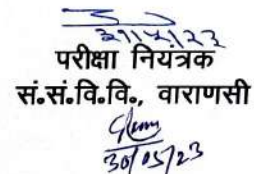 ३१/५/२३
परीक्षा नियंत्रक
सं.सं.वि.वि., वाराणसी
30/05/23